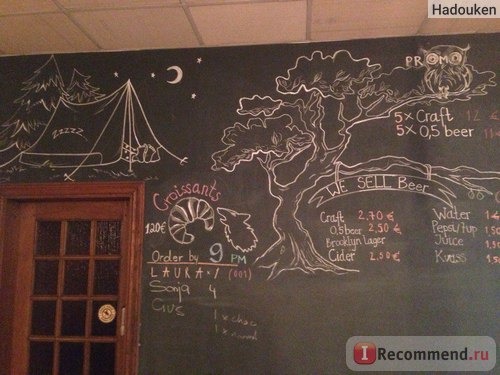 Hadouken
PROMO
5 x Craft 12 €
5 x 0,5 beer
zzzzz
WE SELL Beer
Croissants
1.20€
Craft 2,70 €
0,5 beer 2,50 €
Brooklyn Lager
Cider 2,50 €
Water
Pepsi/7up
Juice
Kvass
Order by 9 PM
LAURA
(001)
Sonja 4
GUS 1 x choc
1 x normal
IRecommend.ru